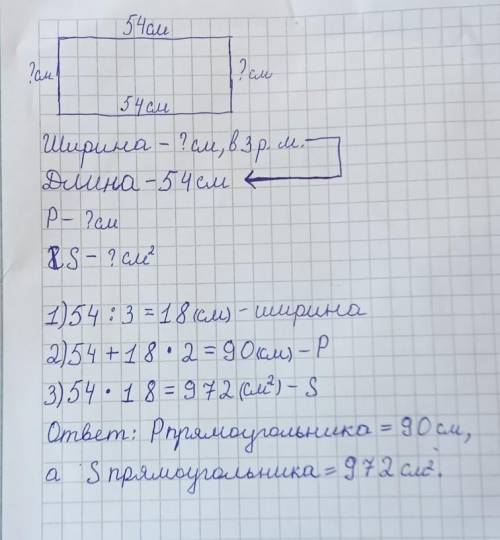 54см
?см
?см
54см
Ширина - ?см, в 3 р. м.
Длина - 54см
P - ?см
S - ?см²
1) 54 : 3 = 18(см) - ширина
2) 54 + 18 · 2 = 90(см) - P
3) 54 · 18 = 972(см²) - S
Ответ: P прямоугольника = 90см,
а S прямоугольника = 972см².